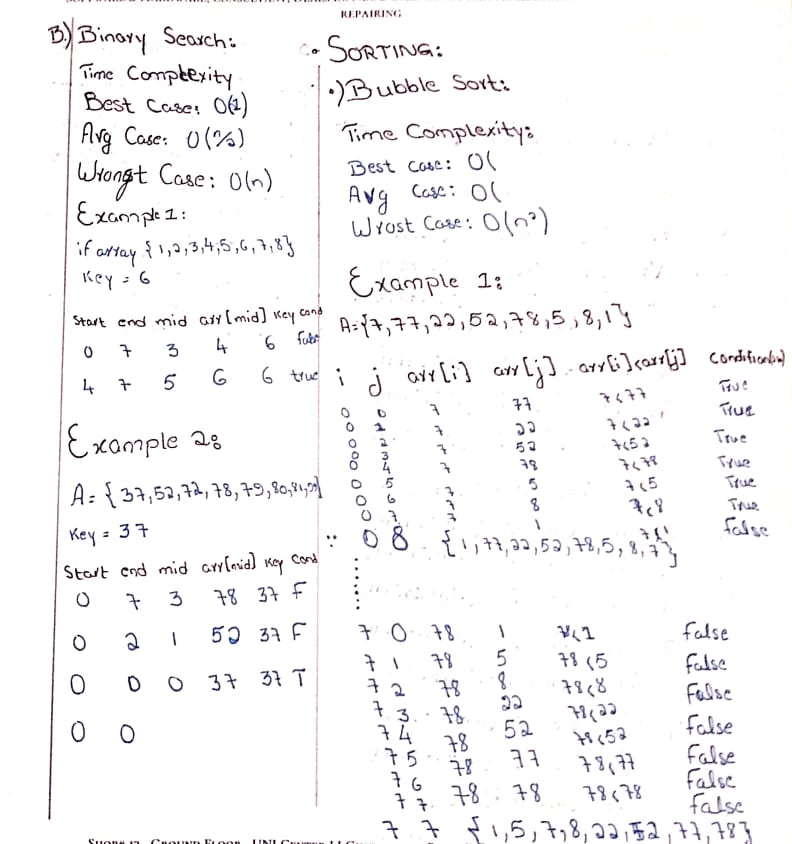 REPAIRING
B.) Binary Search:
Time Complexity
Best Case: O(1)
Avg Case: O(n/2)
Wrongt Case: O(n)
Example 1:
if array {1,2,3,4,5,6,7,8}
Key = 6
Start end mid arr[mid] Key cond
0 7 3 4 6 false
4 7 5 6 6 true
Example 2:
A = {37,52,72,78,79,80,81,99}
Key = 37
Start end mid arr[mid] Key Cond
0 7 3 78 37 F
0 2 1 52 37 F
0 0 0 37 37 T
0 0
SORTING:
.) Bubble Sort:
Time Complexity:
Best Case: O(
Avg Case: O(
Wrost Case: O(n²)
Example 1:
A={7,77,22,52,78,5,8,1}
i j arr[i] arr[j] arr[i]<arr[j]
0 0 7 77 7<77 True
0 1 7 22 7<22 True
0 2 7 52 7<52 True
0 3
0 4 7 78 7<78 True
0 5 7 5 7<5 True
0 6 7 8 7<8 True
0 7 7 1 7<1 false
0 8 {1,77,22,52,78,5,8,7}
7 0 78 1 false
7 1 78 5 78<5 false
7 2 78 8 78<8 False
7 3 78 22 78<22
7 4 78 52 78<52 false
7 5 78 77 78<77 False
7 6 false
7 7 78 78 78<78 false
7 7 {1,5,7,8,22,52,77,78}